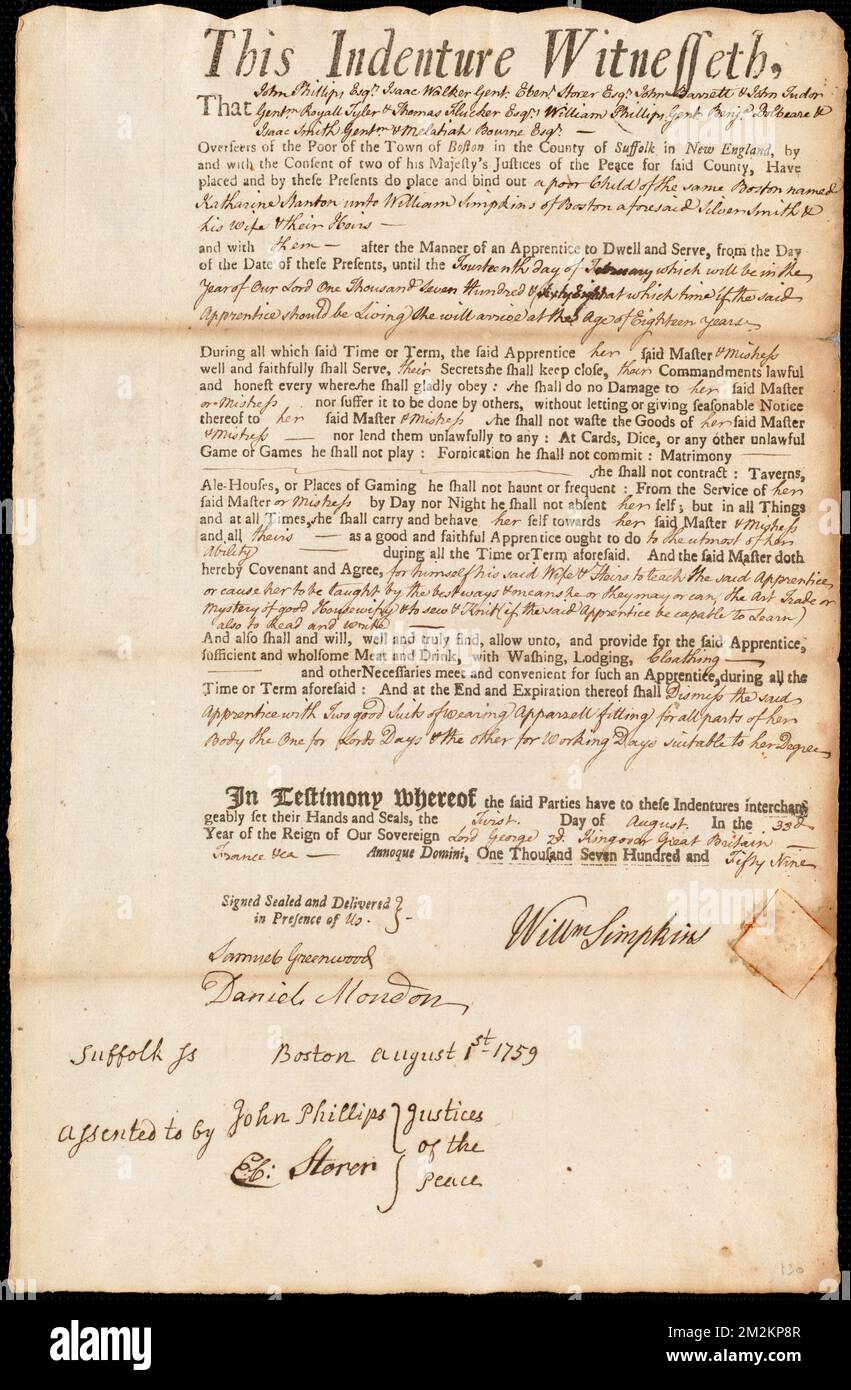 This Indenture Witnesseth,
John Phillips Esqr. Isaac Walker Gent. Ebenr. Storer Esqr. John Barrett & John Tudor
That Gentm. Royall Tyler & Thomas Flucker Esqrs. William Phillips Gent. Benja. Dolbeare &
Isaac Smith Gentm. & Melatiah Bourne Esqr.
Overseers of the Poor of the Town of Boston in the County of Suffolk in New England, by
and with the Consent of two of his Majesty's Justices of the Peace for said County, Have
placed and by these Presents do place and bind out a poor Child of the same Boston named
Katharine Stanton unto William Simpkins of Boston aforesaid Silver Smith &
his Wife & their Heirs —
and with them — after the Manner of an Apprentice to Dwell and Serve, from the Day
of the Date of these Presents, until the Fourteenth day of February which will be in the
Year of Our Lord One Thousand Seven Hundred & Sixty Eight at which time if the said
Apprentice should be Living she will arrive at the Age of Eighteen Years.
During all which said Time or Term, the said Apprentice her said Master & Mistress
well and faithfully shall Serve, their Secrets she shall keep close, their Commandments lawful
and honest every where she shall gladly obey : she shall do no Damage to her said Master
or Mistress nor suffer it to be done by others, without letting or giving seasonable Notice
thereof to her said Master & Mistress she shall not waste the Goods of her said Master
& Mistress — nor lend them unlawfully to any : At Cards, Dice, or any other unlawful
Game or Games he shall not play : Fornication he shall not commit : Matrimony —
she shall not contract : Taverns,
Ale-Houses, or Places of Gaming he shall not haunt or frequent : From the Service of her
said Master or Mistress by Day nor Night he shall not absent her self ; but in all Things
and at all Times, she shall carry and behave her self towards her said Master & Mistress
and all theirs — as a good and faithful Apprentice ought to do to the utmost of her
Ability — during all the Time or Term aforesaid. And the said Master doth
hereby Covenant and Agree, for himself his said Wife & Heirs to teach the said Apprentice
or cause her to be taught by the best ways & means he or they may or can, the Art Trade or
Mystery of good Housewifry & to sew & Knit (if the said Apprentice be capable to Learn)
also to Read and write
And also shall and will, well and truly find, allow unto, and provide for the said Apprentice,
sufficient and wholsome Meat and Drink, with Washing, Lodging, Cloathing —
and other Necessaries meet and convenient for such an Apprentice, during all the
Time or Term aforesaid : And at the End and Expiration thereof shall Dismiss the said
Apprentice with Two good Suits of wearing Apparrell fitting for all parts of her
Body the One for Lords Days & the other for Working Days suitable to her Degree
In Testimony whereof the said Parties have to these Indentures interchan
geably set their Hands and Seals, the First Day of August In the 33d
Year of the Reign of Our Sovereign Lord George 2d. King over Great Britain —
France &ca — Annoque Domini, One Thousand Seven Hundred and Fifty Nine
Signed Sealed and Delivered
in Presence of Us.
Willm Simpkins
Samuel Greenwood
Daniel Mondon
Suffolk ss Boston august 1st 1759
assented to by John Phillips Justices
of the
Eb: Storer Peace
130
alamy
Image ID: 2M2KP8R
www.alamy.com